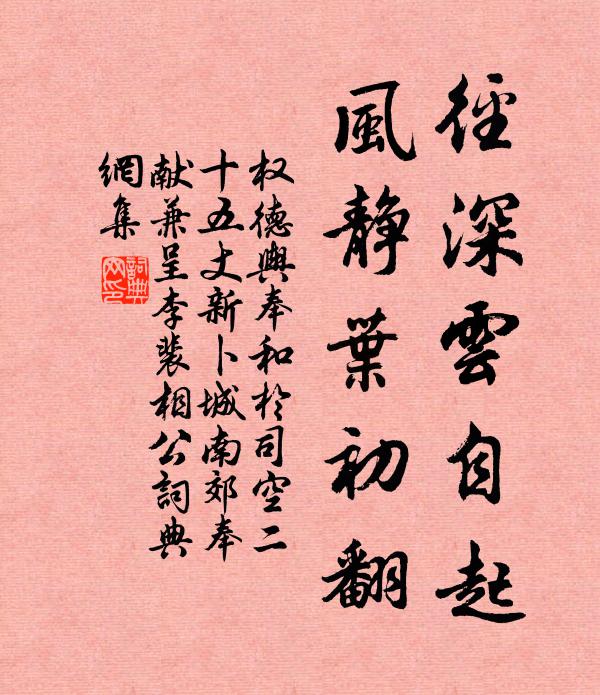 徑深雲自起
風静葉初翻
权德輿奉和於司空二
十五丈新卜城南郊奉
献兼呈李裴相公詞典
網集
詞典
网印